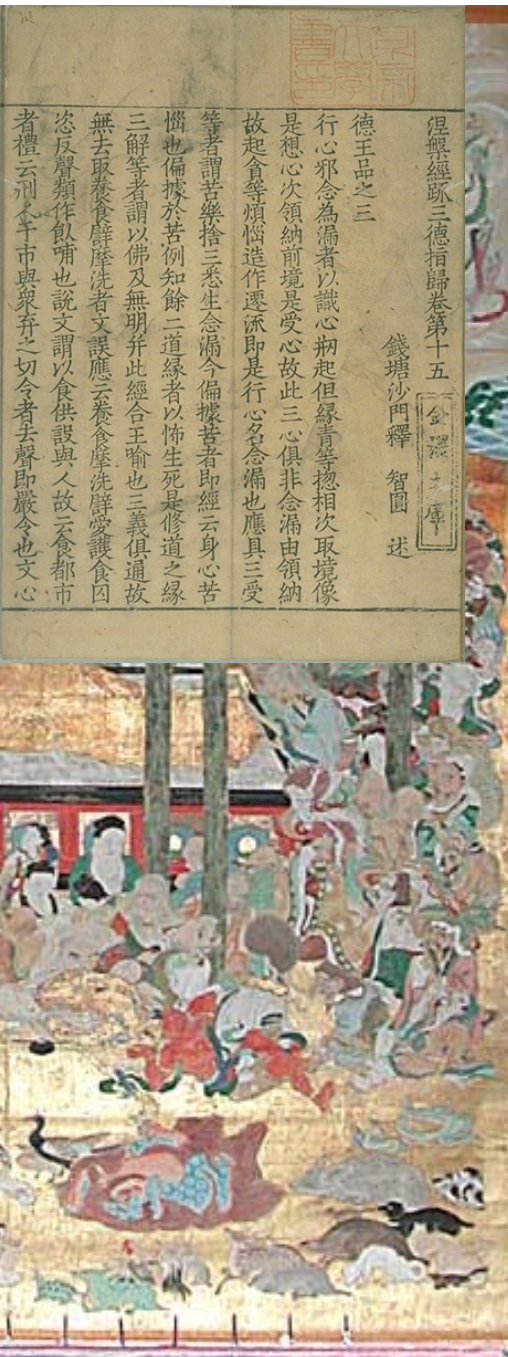 涅槃經疏三德指歸卷第十五
金澤文庫
錢塘沙門釋 智圓 述
德王品之三
行心邪念為漏者以識心剏起但緣青等揔相次取境像
是想心次領納前境是受心故此三心俱非念漏由領納
故起貪等煩惱造作遷流即是行心名念漏也應具三受
等者謂苦樂捨三悉生念漏今偏據苦者即經云身心苦
惱也偏據於苦例知餘二道緣者以怖生死是修道之緣
三解等者謂以佛及無明并此經合王喻也三義俱通故
無去取養食臂摩洗者文誤應云養食摩洗臂愛護食囚
恣反聲類作飤哺也說文謂以食供設與人故云食都市
者禮云刑人于市與衆弃之切令者去聲即嚴令也文心